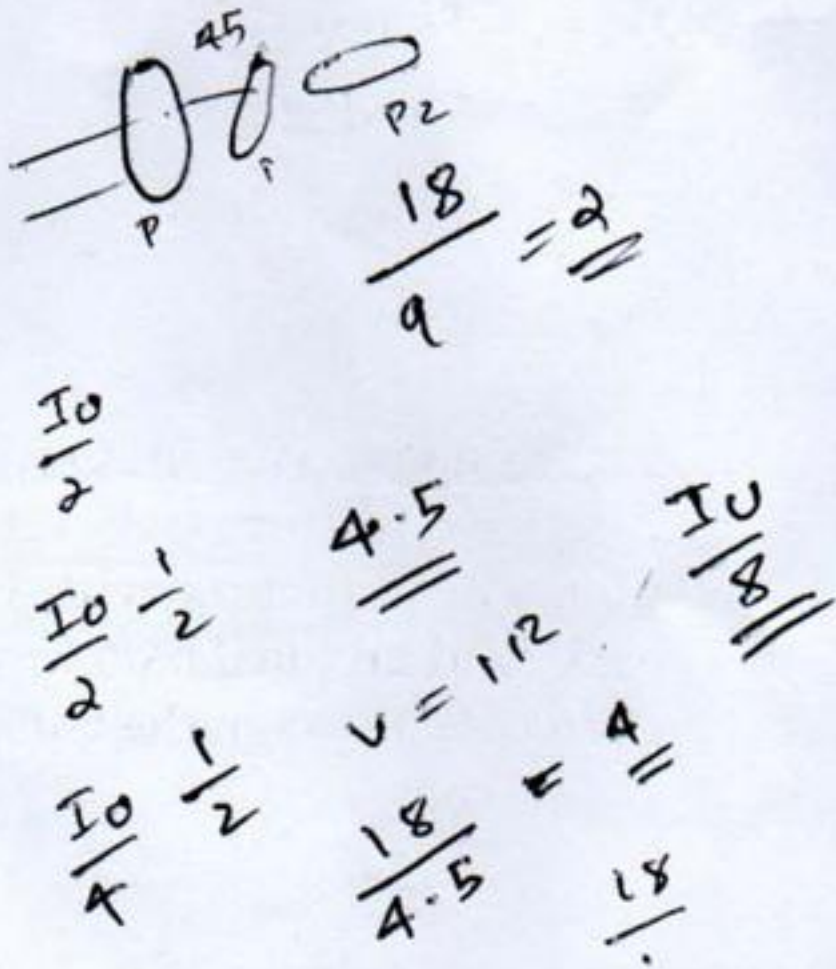 45
P
P2
18/9 = 2
I0/2
I0/2 1/2
4.5
I0/8
I0/4 1/2
18/4.5 = 4
18